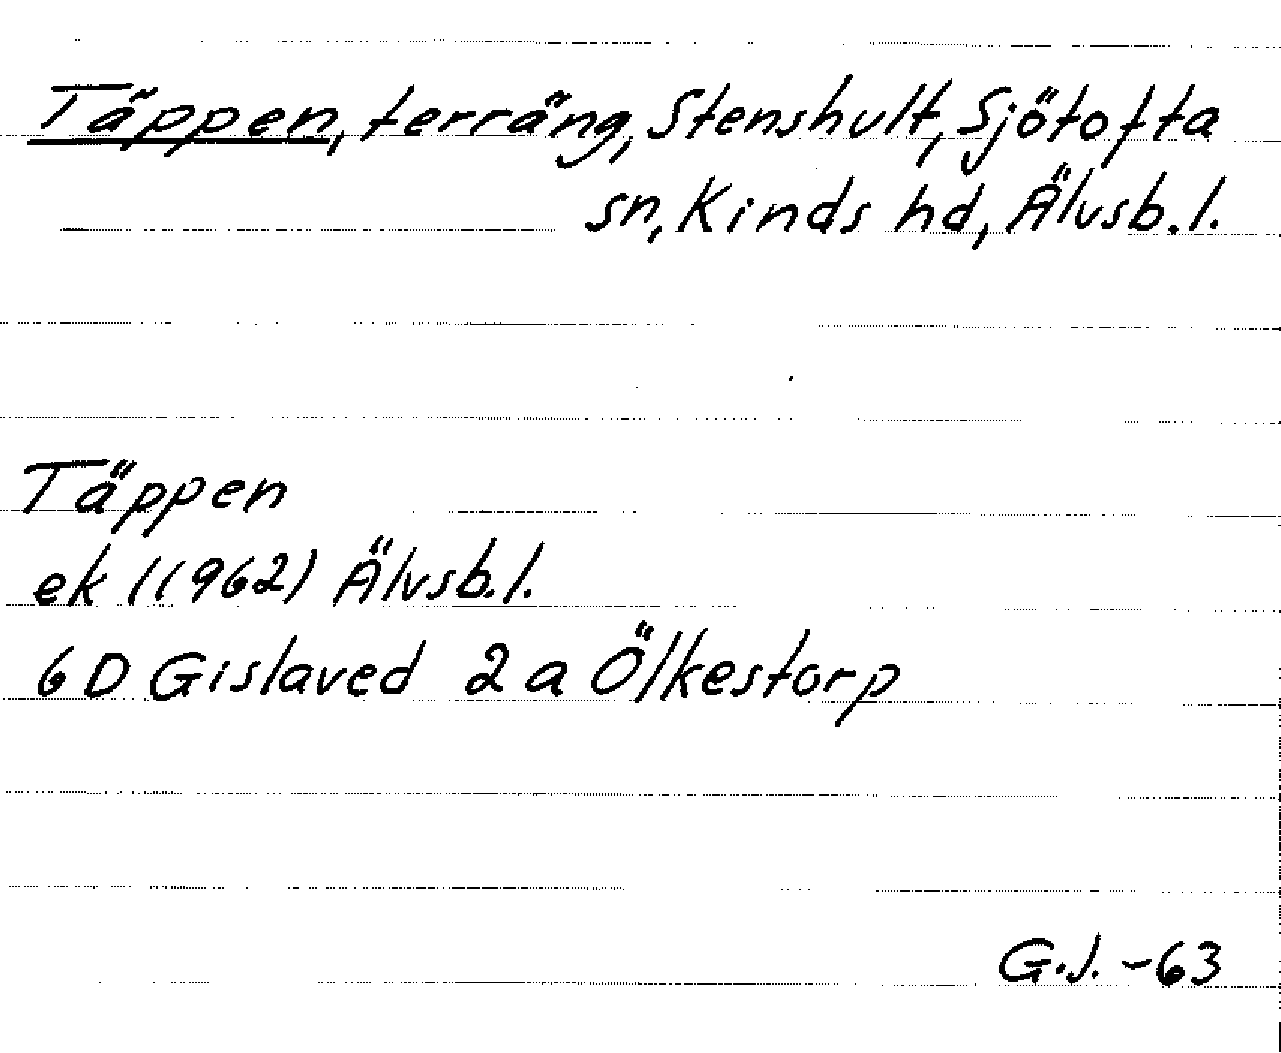 Täppen, terräng, Stenshult, Sjötofta
sn, Kinds hd, Älvsb. l.
Täppen
ek (1962) Älvsb. l.
6 D Gislaved 2 a Ölkestorp
G.J. -63